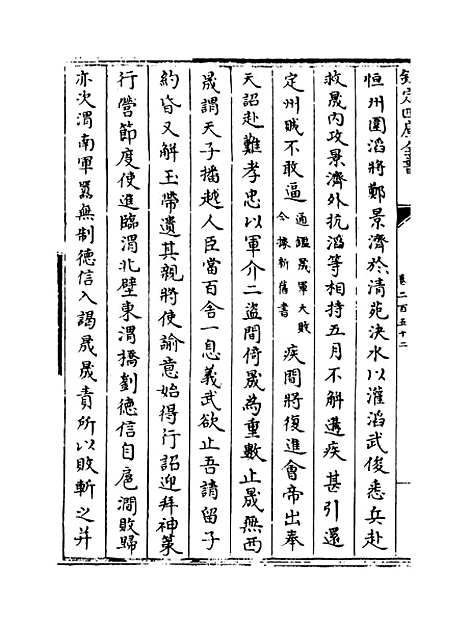 欽定四庫全書
卷二百五十二
恒州圍滔將鄭景濟於清苑決水以灌滔武俊悉兵赴
救晟内攻景濟外抗滔等相持五月不解遘疾甚引還
定州賊不敢逼
通鑑晟軍大敗
今據新舊書
疾間將復進會帝出奉
天詔赴難孝忠以軍介二盜間倚晟為重數止晟無西
晟謂天子播越人臣當百舍一息義武欲止吾請留子
約昏又解玉帶遺其親將使諭意始得行詔迎拜神策
行營節度使進臨渭北壁東渭橋劉德信自扈澗敗歸
亦次渭南軍囂無制德信入謁晟晟責所以敗斬之并